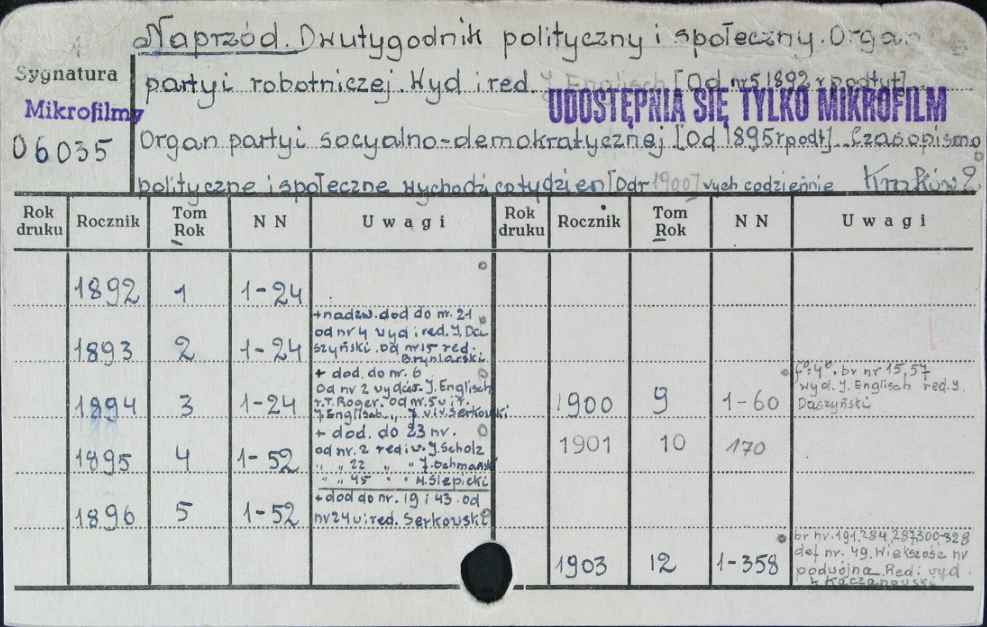 Naprzód. Dwutygodnik polityczny i społeczny. Organ
Sygnatura
partyi robotniczej. Wyd i red. J. Englisch [Od nr 5 1892 r podtyt]
Mikrofilmy
UDOSTĘPNIA SIĘ TYLKO MIKROFILM
06035
Organ partyi socyalno-demokratycznej [Od 1895 r podt] Czasopismo
polityczne i społeczne wychodzi co tydzien [Od r 1900] wych codziennie Kraków
Rok druku Rocznik Tom Rok N N Uwagi Rok druku Rocznik Tom Rok N N Uwagi
1892 1 1-24
1893 2 1-24 + nadzw. dod do nr. 21
od nr 4 wyd i red. J. Da
szyński. od nr 15 red.
Bryniarski
1894 3 1-24 + dod. do nr. 6
od nr 2 wyd J. Englisch
r. T. Roger. od nr. 5 w i r.
J. Englisch Serkowski
1900 9 1-60 f° 4°. br nr 15, 57
wyd. J. Englisch red. J.
Daszyński
1895 4 1-52 + dod. do 23 nr.
od nr. 2 red i w. J. Scholz
" " 22 " " J. Ochmański
" " 45 " " M. Ślepicki
1901 10 170
1896 5 1-52 + dod do nr. 19 i 43. od
nr 24 w i red. Serkowski
1903 12 1-358 br nr. 191, 284, 287 300-328
def nr. 49. Większość nr
podwójna Red i wyd.
Kaczanowski